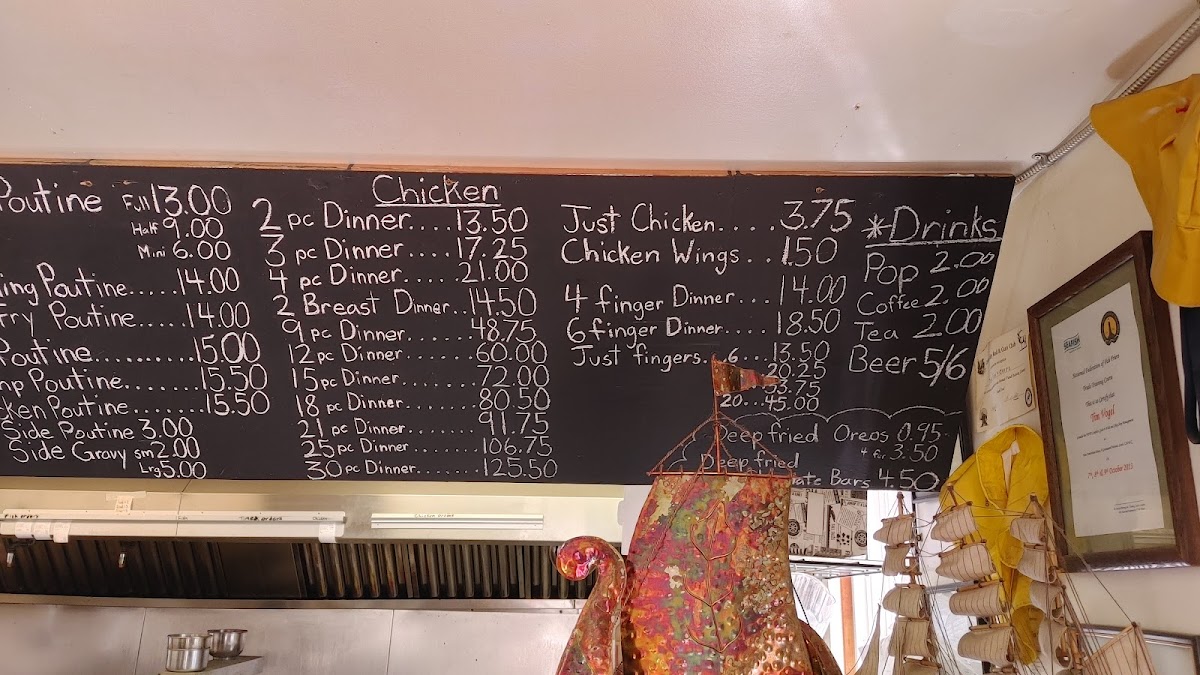 Poutine Full 13.00
Half 9.00
Mini 6.00
ing Poutine.....14.00
Fry Poutine.....14.00
Poutine..........15.00
mp Poutine.......15.50
ken Poutine.......15.50
Side Poutine 3.00
Side Gravy sm 2.00
Lrg 5.00
Chicken
2 pc Dinner....13.50
3 pc Dinner....17.25
4 pc Dinner....21.00
2 Breast Dinner..14.50
9 pc Dinner......48.75
12 pc Dinner......60.00
15 pc Dinner......72.00
18 pc Dinner.......80.50
21 pc Dinner.......91.75
25 pc Dinner.......106.75
30 pc Dinner.......125.50
Just Chicken.....3.75
Chicken Wings..1.50
4 finger Dinner...14.00
6 finger Dinner....18.50
Just fingers...6...13.50
20.25
33.75
20...45.00
*Drinks
Pop 2.00
Coffee 2.00
Tea 2.00
Beer 5/6
Deep fried Oreos 0.95
3.50
Deep fried
ate Bars 4.50
National Federation of Fish Friers
This is to Certify that
Tom Vogel
October 2013